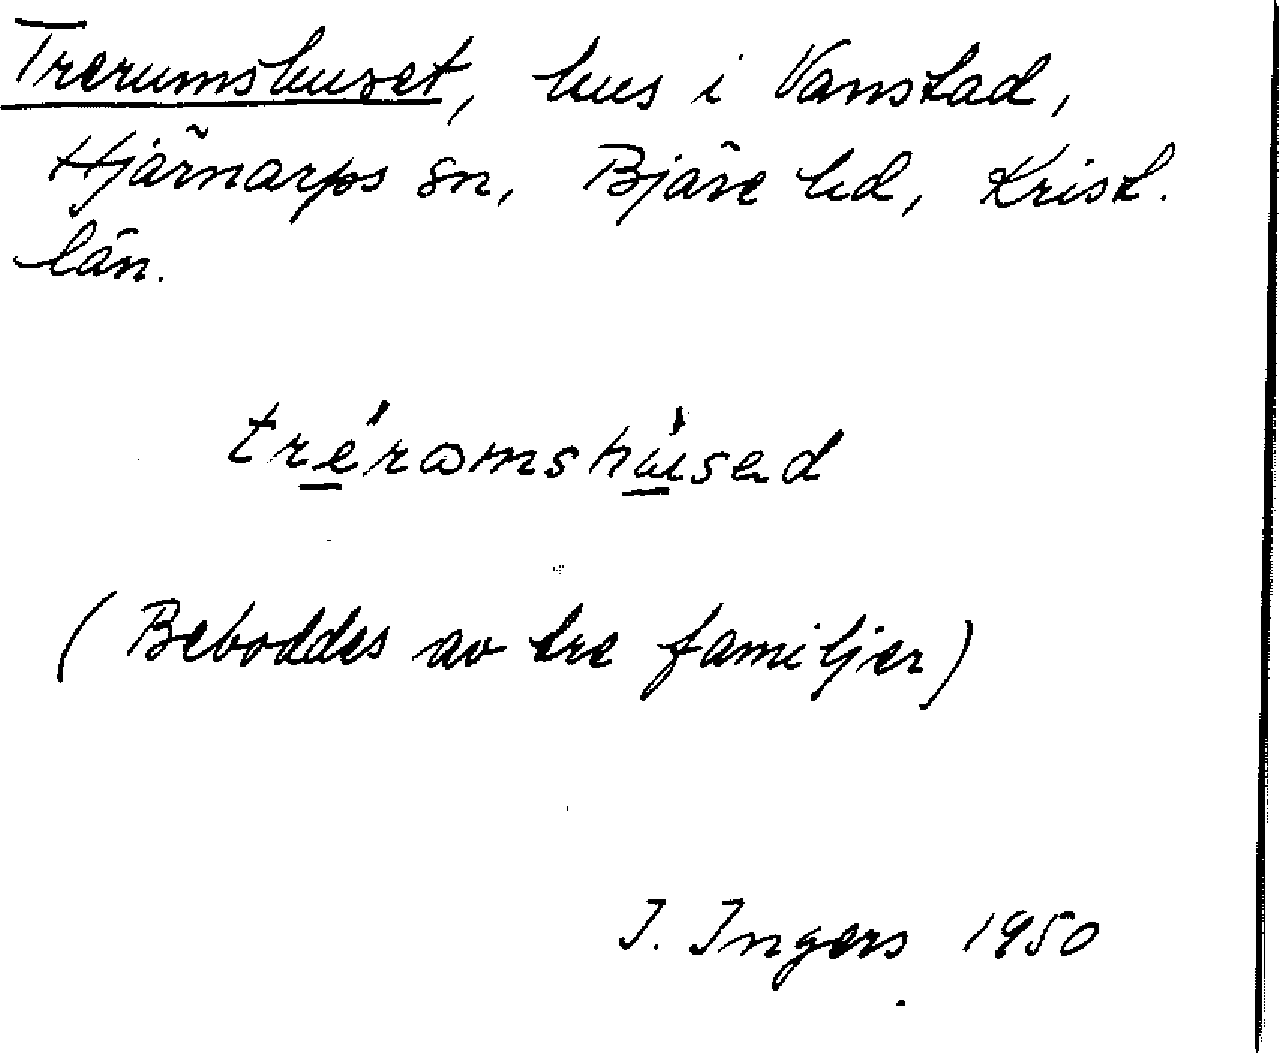 Trerumshuset, hus i Vanstad,
Hjärnarps sn, Bjäre hd, Krist.
län.
(Beboddes av tre familjer)
I. Ingers 1950